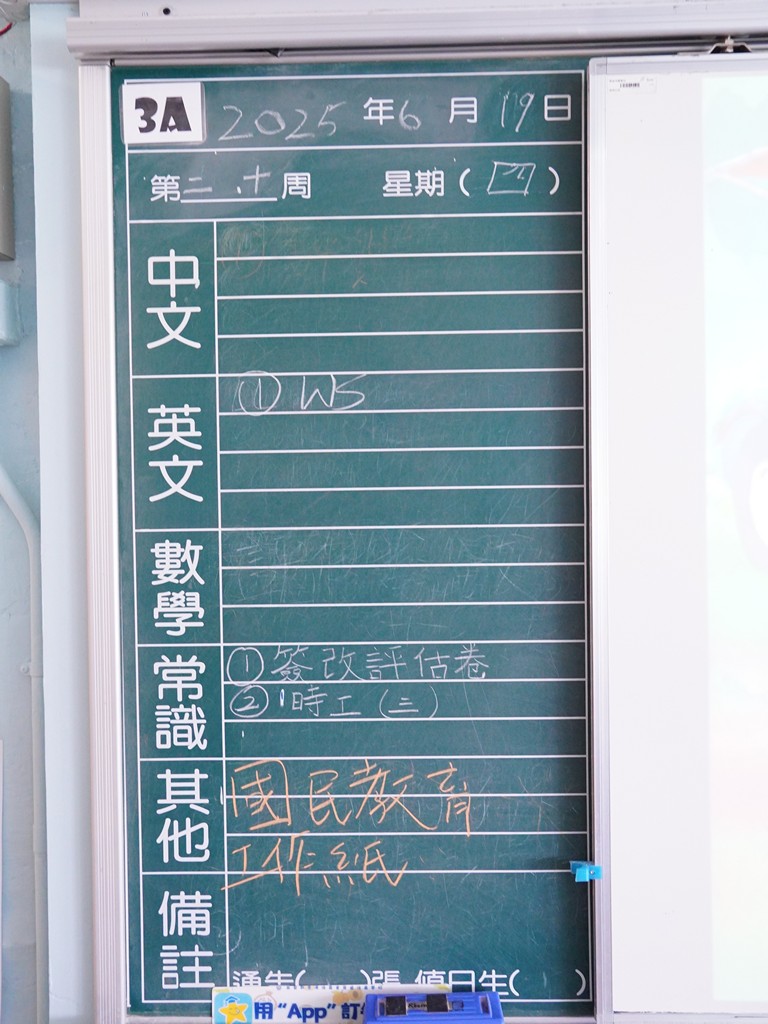 3A 2025年6月19日
第二十周 星期(四)
中文
英文
① WS
數學
常識
① 簽改評估卷
② 時工(三)
其他
國民教育
工作紙
備註
通告( )張 值日生( )
用“App”訂